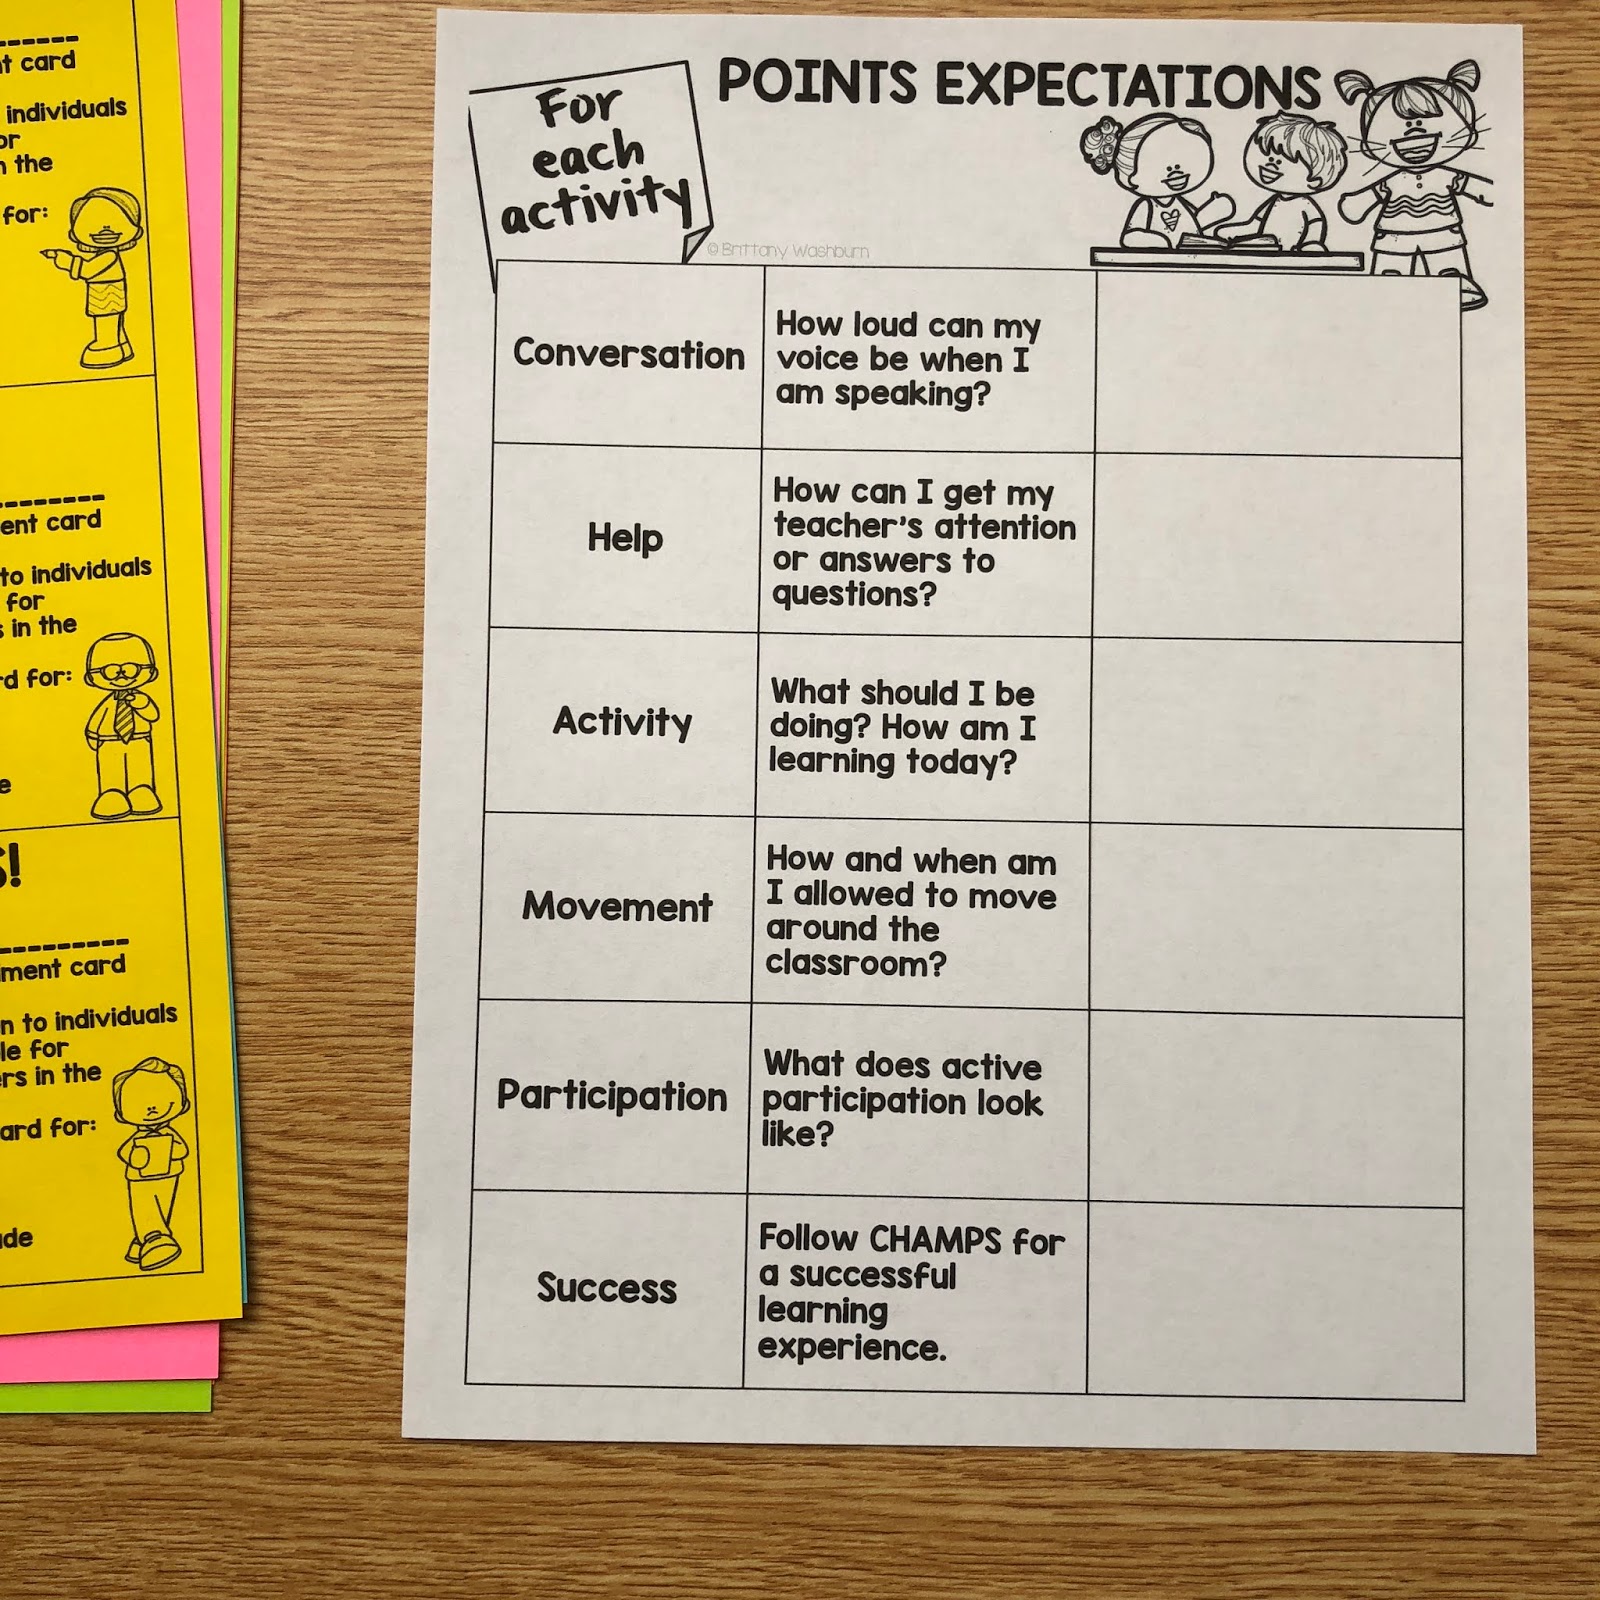 t card
individuals
or
n the
for:
ent card
to individuals
for
s in the
rd for:
e
S!
iment card
n to individuals
le for
ers in the
ard for:
ade
For
each
activity
POINTS EXPECTATIONS
© Brittany Washburn
Conversation
How loud can my
voice be when I
am speaking?
Help
How can I get my
teacher's attention
or answers to
questions?
Activity
What should I be
doing? How am I
learning today?
Movement
How and when am
I allowed to move
around the
classroom?
Participation
What does active
participation look
like?
Success
Follow CHAMPS for
a successful
learning
experience.